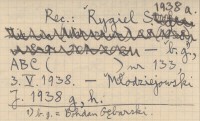 1938 a.
Rec.: Rygiel S.
— b. g.,
ABC ( ) nr 133,
3. V. 1938. — Młodziejowski
J. 1938 g, h.
1) b. g. = Bohdan Gębarski.